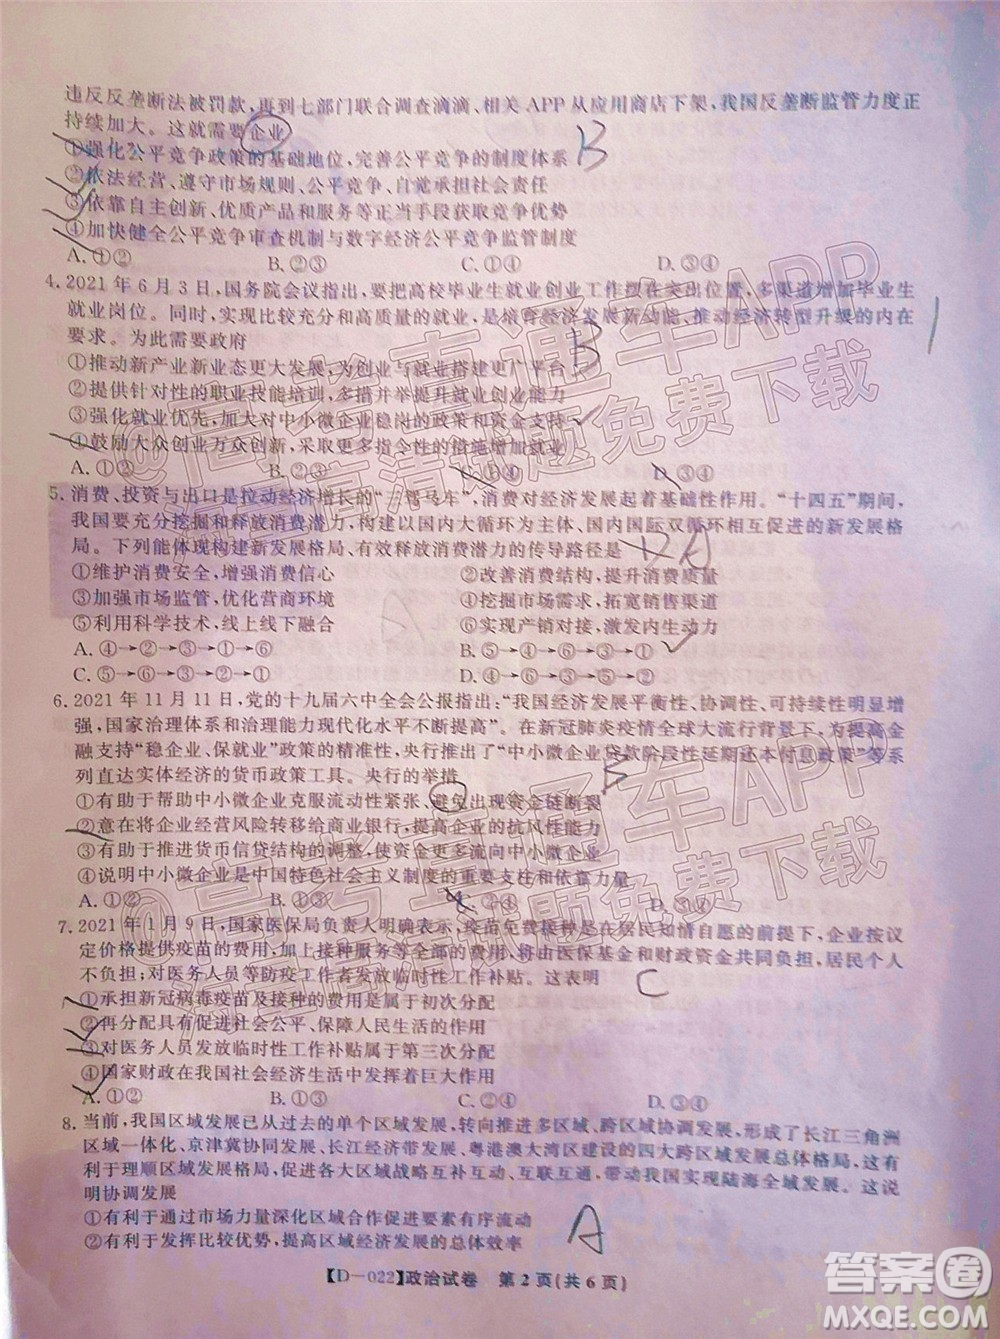 违反反垄断法被罚款，再到七部门联合调查滴滴、相关APP从应用商店下架，我国反垄断监管力度正
持续加大。这就需要企业
①强化公平竞争政策的基础地位，完善公平竞争的制度体系
②依法经营、遵守市场规则、公平竞争、自觉承担社会责任
③依靠自主创新、优质产品和服务等正当手段获取竞争优势
④加快健全公平竞争审查机制与数字经济公平竞争监管制度
A.①② B.②③ C.①④ D.③④
B
4. 2021年6月3日，国务院会议指出，要把高校毕业生就业创业工作摆在突出位置，多渠道增加毕业生
就业岗位。同时，实现比较充分和高质量的就业，是培育经济发展新动能、推动经济转型升级的内在
要求。为此需要政府
①推动新产业新业态更大发展，为创业与就业搭建更广平台
②提供针对性的职业技能培训，多举措提升就业创业能力
③强化就业优先，加大对中小微企业稳岗的政策和资金支持
④鼓励大众创业万众创新，采取更多指令性的措施增加就业
A.①② B.①③ C.②④ D.③④
B
5. 消费、投资与出口是拉动经济增长的“三驾马车”，消费对经济发展起着基础性作用。“十四五”期间，
我国要充分挖掘和释放消费潜力，构建以国内大循环为主体、国内国际双循环相互促进的新发展格
局。下列能体现构建新发展格局、有效释放消费潜力的传导路径是
①维护消费安全，增强消费信心 ②改善消费结构，提升消费质量
③加强市场监管，优化营商环境 ④挖掘市场需求，拓宽销售渠道
⑤利用科学技术，线上线下融合 ⑥实现产销对接，激发内生动力
A.④→②→③→①→⑥
C.⑤→⑥→③→①→②
6. 2021年11月11日，党的十九届六中全会公报指出：“我国经济发展平衡性、协调性、可持续性明显增
强，国家治理体系和治理能力现代化水平不断提高”。在新冠肺炎疫情全球大流行背景下，为提高金
融支持“稳企业、保就业”政策的精准性，央行推出了“中小微企业贷款阶段性延期还本付息政策”等系
列直达实体经济的货币政策工具。央行的举措
①有助于帮助中小微企业克服流动性紧张、避免出现资金链断裂
②意在将企业经营风险转移给商业银行，提高企业的抗风性能力
③有助于推进货币信贷结构的调整，使资金更多流向中小微企业
④说明中小微企业是中国特色社会主义制度的重要支柱和依靠力量
A.①② B.①③ C.②④ D.③④
B
7. 2021年1月9日，国家医保局负责人明确表示，疫苗免费接种是在居民知情自愿的前提下，企业按议
定价格提供疫苗的费用，加上接种服务等全部费用，将由医保基金和财政资金共同负担，居民个人
不负担；对医务人员等防疫工作者发放临时性工作补贴。这表明
①承担新冠病毒疫苗及接种的费用是属于初次分配
②再分配具有促进社会公平、保障人民生活的作用
③对医务人员发放临时性工作补贴属于第三次分配
④国家财政在我国社会经济生活中发挥着巨大作用
A.①② B.①③ C.②④ D.③④
C
8. 当前，我国区域发展已从过去的单个区域发展，转向推进多区域、跨区域协调发展，形成了长江三角洲
区域一体化，京津冀协同发展、长江经济带发展、粤港澳大湾区建设的四大跨区域发展总体格局。这
有利于理顺区域发展格局，促进各大区域战略互补互动、互联互通，带动我国实现陆海全域发展。这说
明协调发展
①有利于通过市场力量深化区域合作促进要素有序流动
②有利于发挥比较优势，提高区域经济发展的总体效率
A
【D—022】政治试卷 第2页(共6页)
@高考直通车APP
海量高清试题免费下载
@高考直通车APP
海量高清试题免费下载
答案圈
MXQE.COM